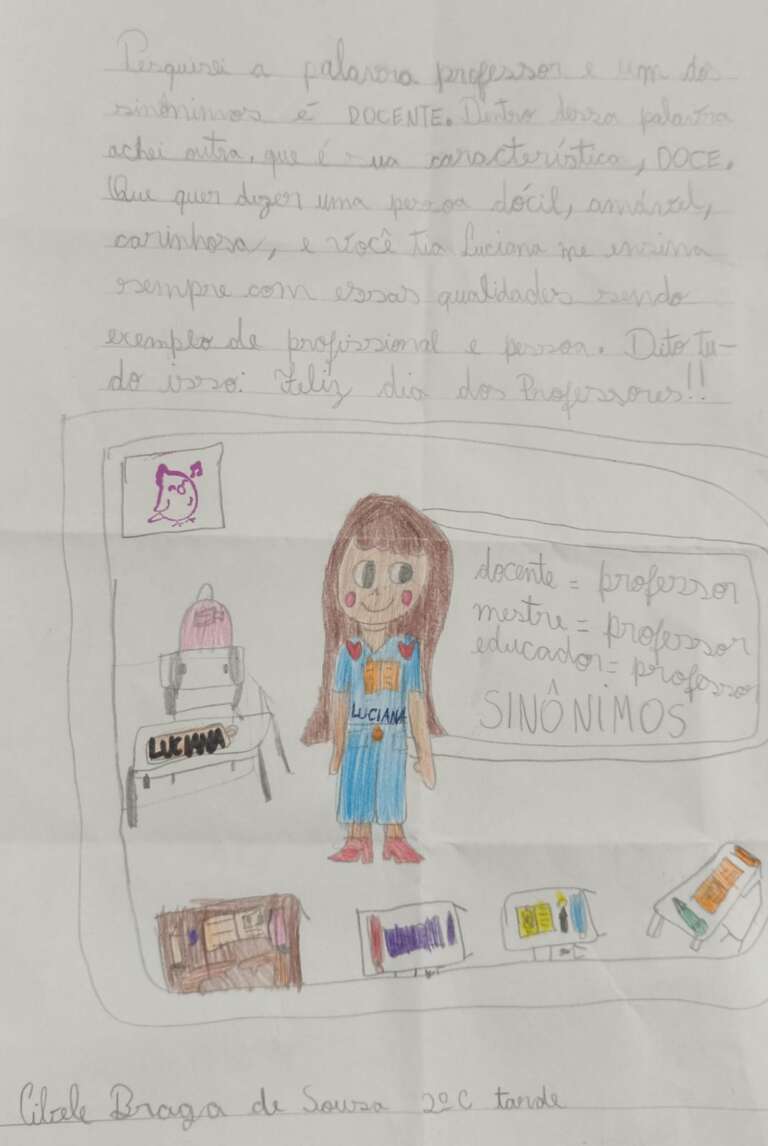 Pesquisei a palavra professor e um dos
sinônimos é DOCENTE. Dentro dessa palavra
achei outra, que é sua característica, DOCE.
Que quer dizer uma pessoa dócil, amável,
carinhosa, e você tia Luciana me ensina
sempre com essas qualidades sendo
exemplo de profissional e pessoa. Dito tu-
do isso: Feliz dia dos Professores!!
docente = professor
mestre = professor
educador = professor
SINÔNIMOS
LUCIANA
LUCIANA
Cibele Braga de Sousa 2º C tarde